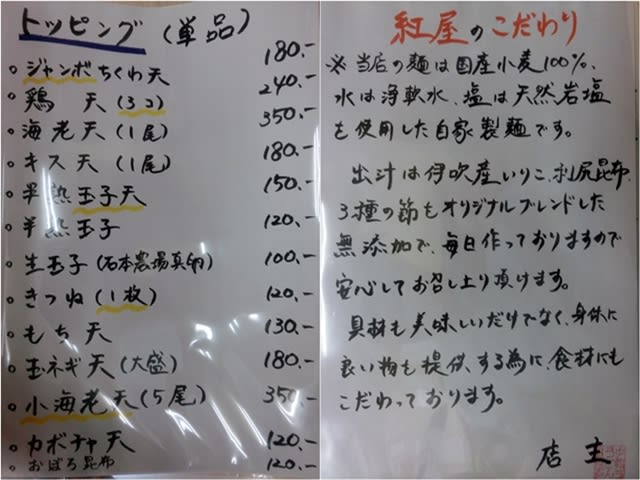 トッピング (単品)
ジャンボちくわ天 180.-
鶏 天 (3コ) 240.-
海老天 (1尾) 350.-
キス天 (1尾) 180.-
半熟玉子天 150.-
半熟玉子 120.-
生玉子 (石本農場真卵) 100.-
きつね (1枚) 120.-
もち天 130.-
玉ネギ天 (大盛) 180.-
小海老天 (5尾) 350.-
カボチャ天 120.-
おぼろ昆布 120.-
紅屋のこだわり
※ 当店の麺は国産小麦100%、
水は浄軟水、塩は天然岩塩
を使用した自家製麺です。
出汁は伊吹産いりこ、利尻昆布、
3種の節もオリジナルブレンドした
無添加で、毎日作っておりますので
安心してお召し上り頂けます。
具材も美味しいだけでなく、身体に
良い物も提供、する為に、食材にも
こだわっております。
店 主